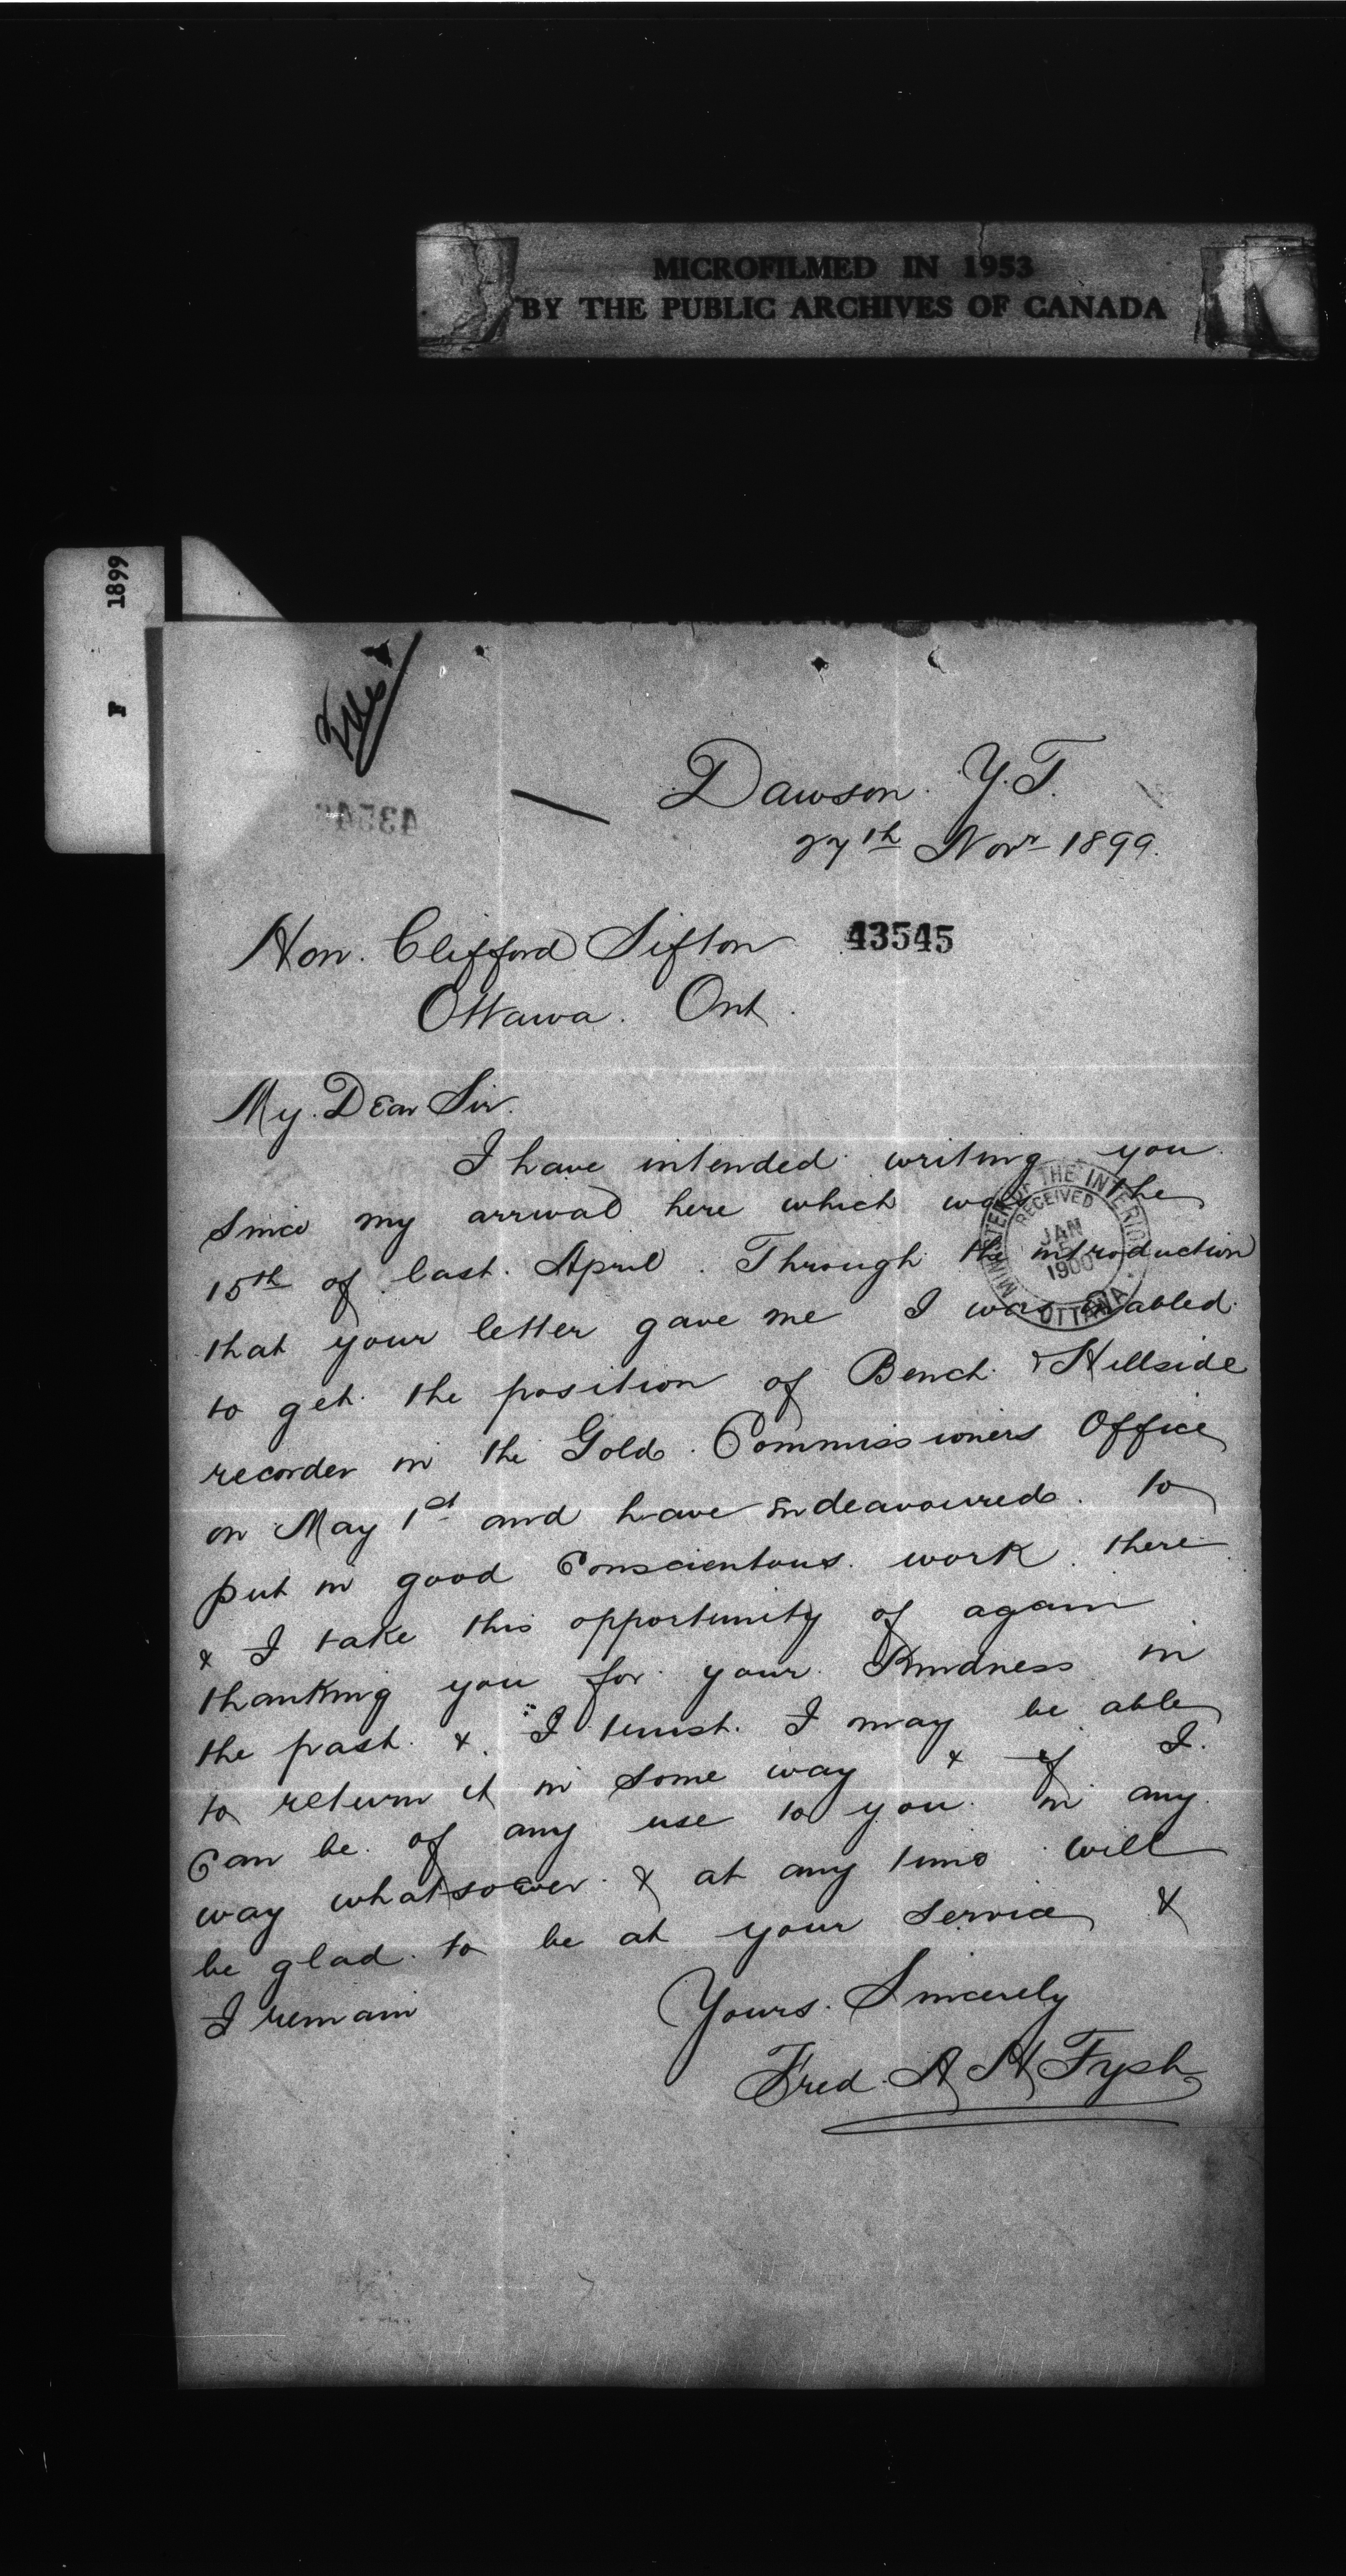 MICROFILMED IN 1953
BY THE PUBLIC ARCHIVES OF CANADA
1899
F
File
Dawson. Y.T.
27th Novr 1899.
Hon. Clifford Sifton
43545
Ottawa. Ont.
My Dear Sir.
I have intended writing you
since my arrival here which was the
15th of last April. Through the introduction
that your letter gave me I was enabled
to get the position of Bench & Hillside
recorder in the Gold Commissioners Office
on May 1st and have endeavoured to
put in good Conscientous work there
& I take this opportunity of again
thanking you for your kindness in
the past & I trust I may be able
to return it in some way & if I
can be of any use to you in any
way whatsoever & at any time will
be glad to be at your service &
I remain
Yours Sincerely
Fred. A H Fysh
MINISTER OF THE INTERIOR
RECEIVED
JAN
1900
OTTAWA